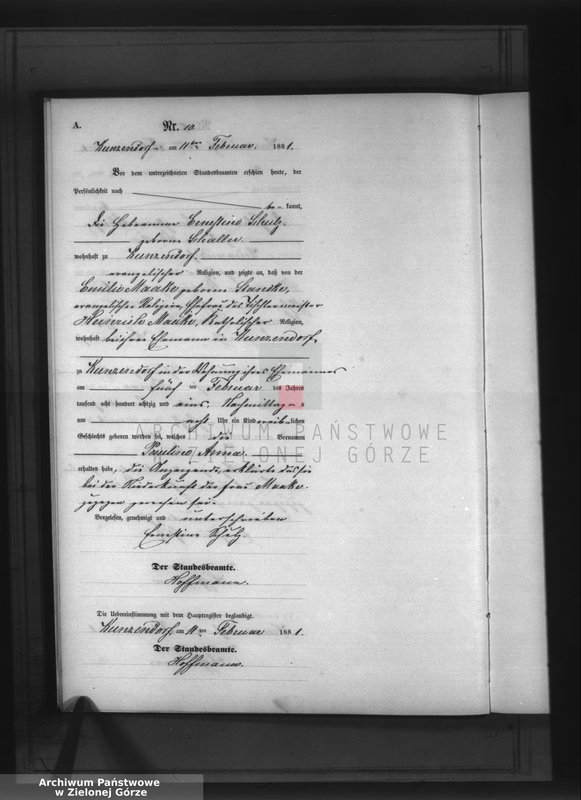 A.
Nr. 10
Kunzendorf am 11ten Februar 1881.
Vor dem unterzeichneten Standesbeamten erschien heute, der
Persönlichkeit nach
be- kannt,
die Hebamme Ernestine Schulz
geborne
wohnhaft zu Kunzendorf
evangelischer Religion, und zeigte an, daß von der
Emilie Maake geborne
evangelischer Religion, Ehefrau des Tischlermeister
Heinrich Maake, katholischer Religion,
wohnhaft bei ihrem Ehemann in Kunzendorf,
zu Kunzendorf in der Wohnung ihres Ehemannes
am fünf ten Februar des Jahres
tausend acht hundert achtzig und eins, Nachmittags
um acht Uhr ein Kind weiblichen
Geschlechts geboren worden sei, welches die Vornamen
Pauline Anna
erhalten habe, die Anzeigende erklärte daß sie
bei der Niederkunft der Frau Maake
zugegen gewesen sei.
Vorgelesen, genehmigt und unterschrieben
Ernestine Schulz.
Der Standesbeamte.
Hoffmann.
Die Uebereinstimmung mit dem Hauptregister beglaubigt.
Kunzendorf, am 11ten Februar 1881.
Der Standesbeamte.
Hoffmann.
ARCHIWUM PAŃSTWOWE
W ZIELONEJ GÓRZE
Archiwum Państwowe
w Zielonej Górze